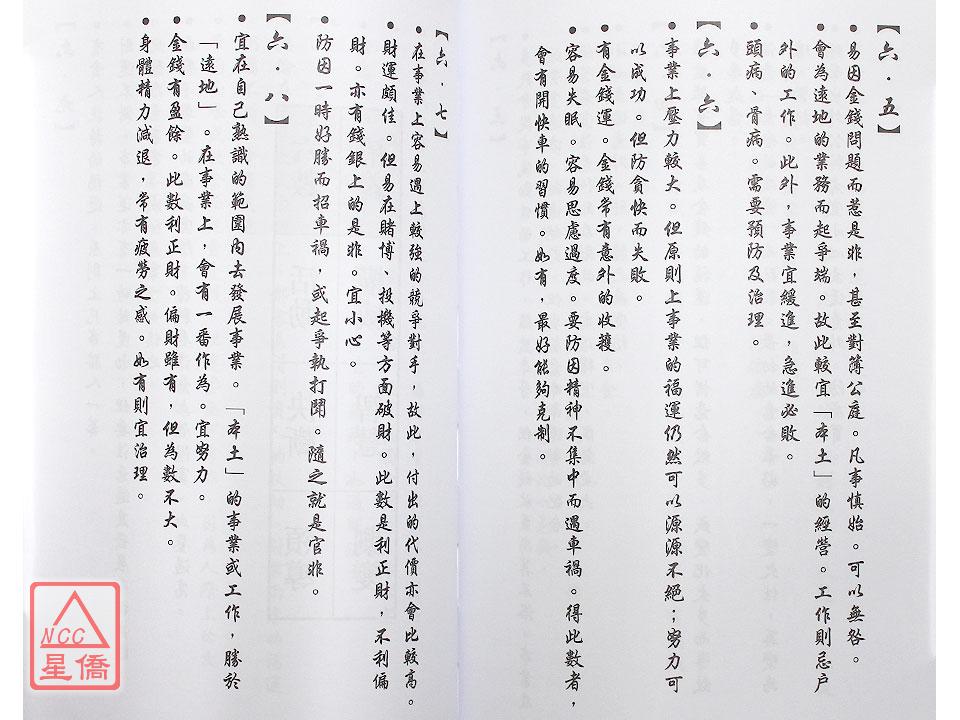 【六．五】
●易因金錢問題而惹是非，甚至對簿公庭。凡事慎始。可以無咎。
●會為遠地的業務而起爭端。故此較宜「本土」的經營。工作則忌戶
外的工作。此外，事業宜緩進，急進必敗。
●頭病、骨病。需要預防及治理。
【六．六】
●事業上壓力較大。但原則上事業的福運仍然可以源源不絕；努力可
以成功。但防貪快而失敗。
●有金錢運。金錢常有意外的收穫。
●容易失眠。容易思慮過度。要防因精神不集中而遇車禍。得此數者，
會有開快車的習慣。如有，最好能夠克制。
【六．七】
●在事業上容易遇上較強的競爭對手，故此，付出的代價亦會比較高。
●財運頗佳。但易在賭博、投機等方面破財。此數是利正財，不利偏
財。亦有錢銀上的是非。宜小心。
●防因一時好勝而招車禍，或起爭執打鬥。隨之就是官非。
【六．八】
●宜在自己熟識的範圍內去發展事業。「本土」的事業或工作，勝於
「遠地」。在事業上，會有一番作為。宜努力。
●金錢有盈餘。此數利正財。偏財雖有，但為數不大。
●身體精力減退，常有疲勞之感。如有則宜治理。
NCC
星僑